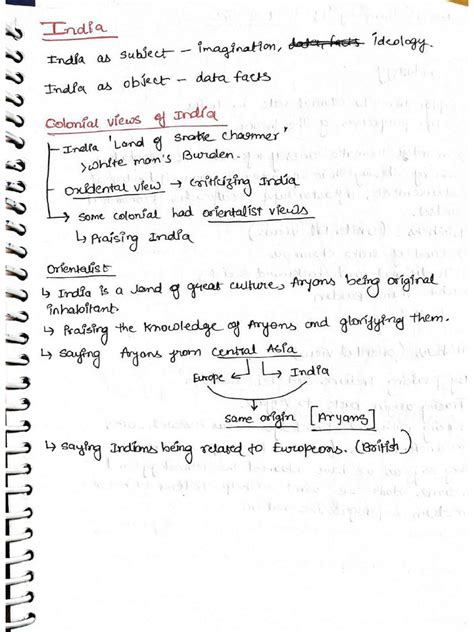 India
India as subject – imagination, data, facts ideology.
India as object – data facts
Colonial views of India
India 'Land of Snake Charmer'
White mom's Burden.
Oxidental view → Criticizing India
some colonial had orientalist views
↳ Praising India
Orientalist
↳ India is a land of great culture, Aryons being original
inhabitant.
↳ Praising the knowledge of Aryons and glorifying them.
↳ saying Aryons from central Asia
Europe ↵ ↳ India
same origin [Aryans]
↳ saying Indians being related to Europeons. (British)